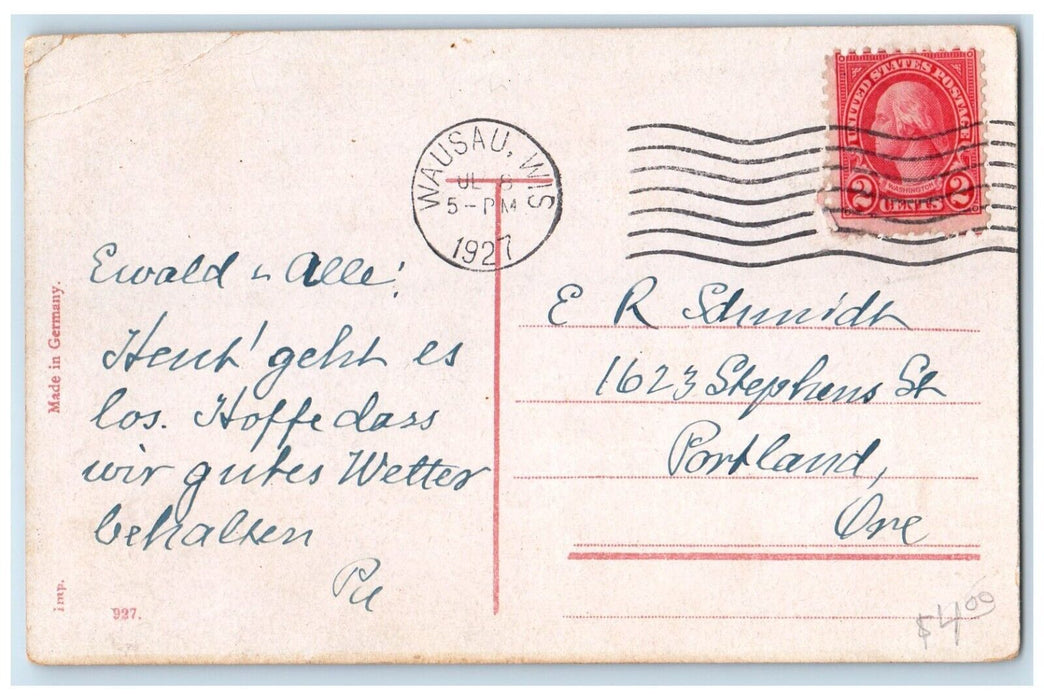 WAUSAU, WIS
JL 8
5-PM
1927
UNITED STATES POSTAGE
WASHINGTON
2 CENTS 2
Ewald u Alle!
Heut' geht es
los. Hoffe dass
wir gutes Wetter
behalten
E R Schmidt
1623 Stephens St
Portland,
Ore
Made in Germany.
Imp.
927.
$4.00